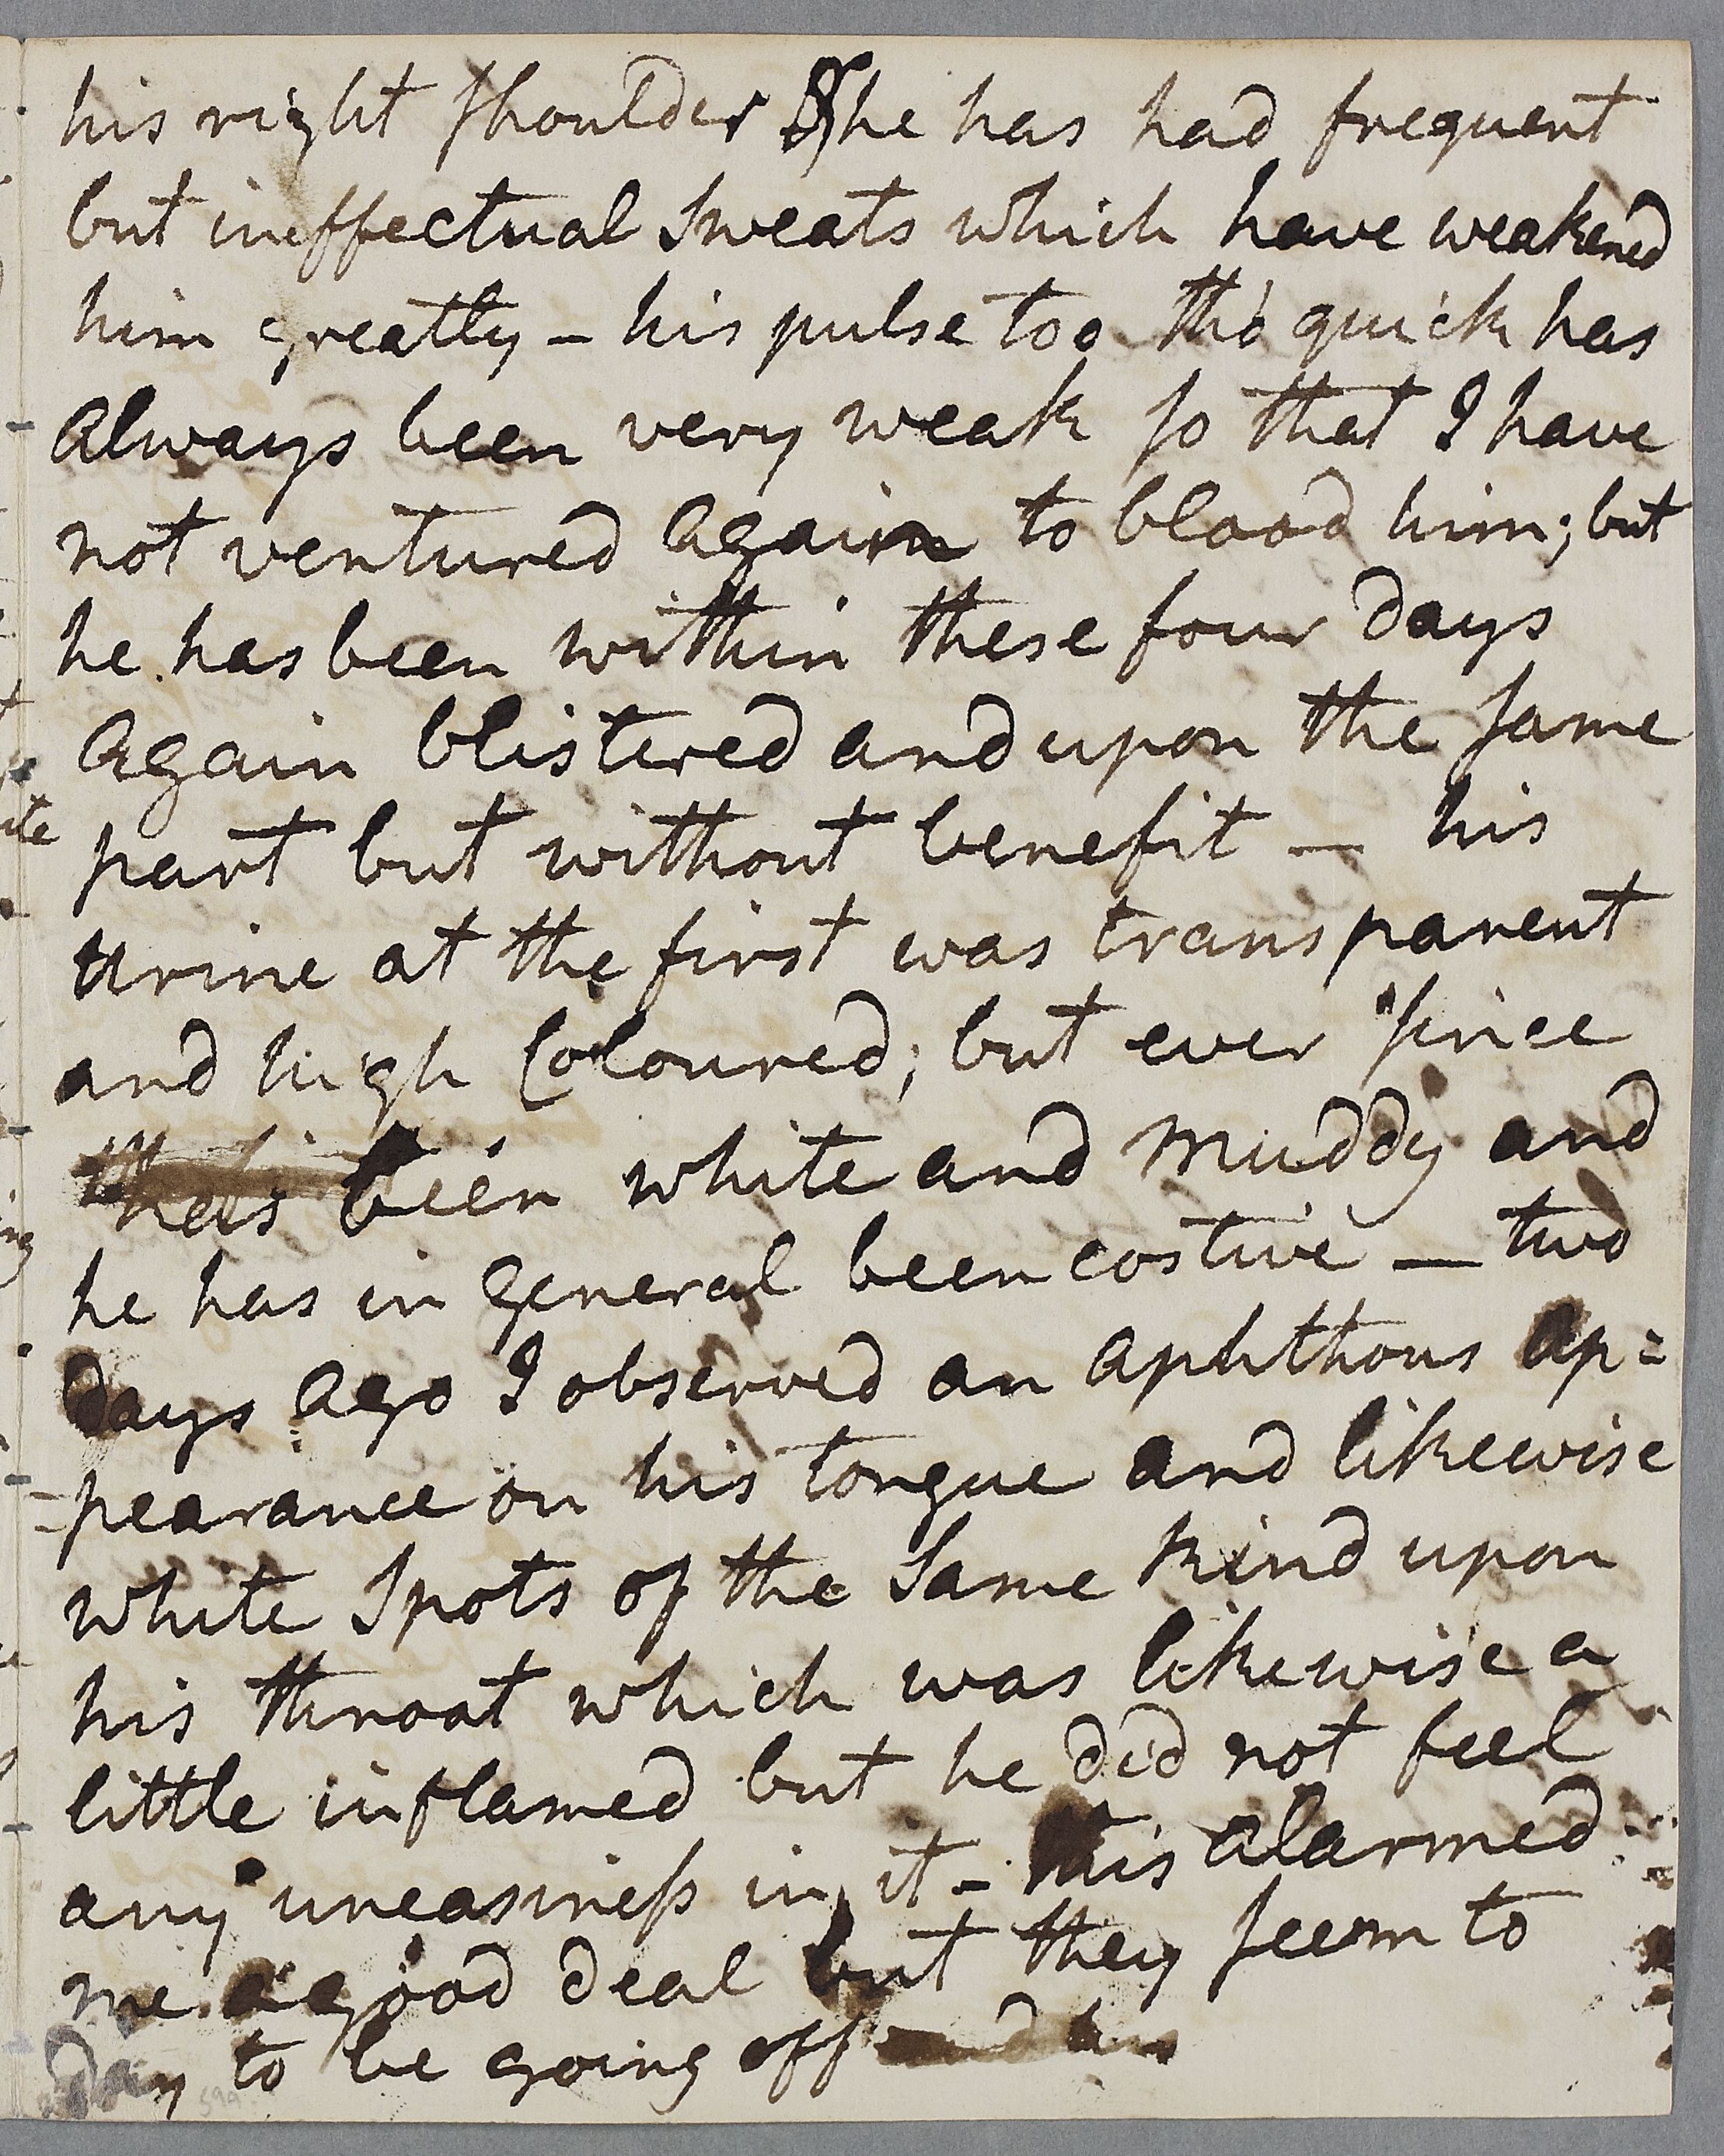 his right shoulder & he has had frequent
but ineffectual sweats which have weakened
him greatly – his pulse too tho' quick has
always been very weak so that I have
not ventured again to blood him; but
he has been within these four days
again blistered and upon the same
part but without benefit — his
urine at the first was transparent
and high Coloured; but ever since
has been white and muddy and
he has in general been costive — two
days ago I observed an aphthous ap=
=pearance on his tongue and likewise
white Spots of the Same kind upon
his throat which was likewise a
little inflamed but he did not feel
any uneasiness in it – this alarmed
me a good deal but they seem to
day to be going off